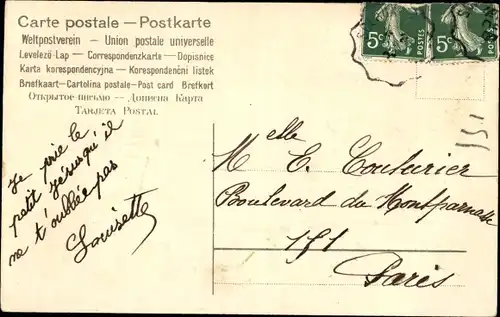 Carte postale — Postkarte
Weltpostverein — Union postale universelle
Levelező-Lap — Correspondenzkarte — Dopisnice
Karta korespondencyjna — Korespondenční listek
Briefkaart — Cartolina postale — Post card Brefkort
Открытое письмо — Дописна Карта
TARJETA POSTAL
5c
POSTES
5c
POSTES
151
Je prie le
petit Jésus qu'il
ne t'oublie pas
Louisette
Melle E. Couturier
Boulevard du Montparnasse
151
Paris